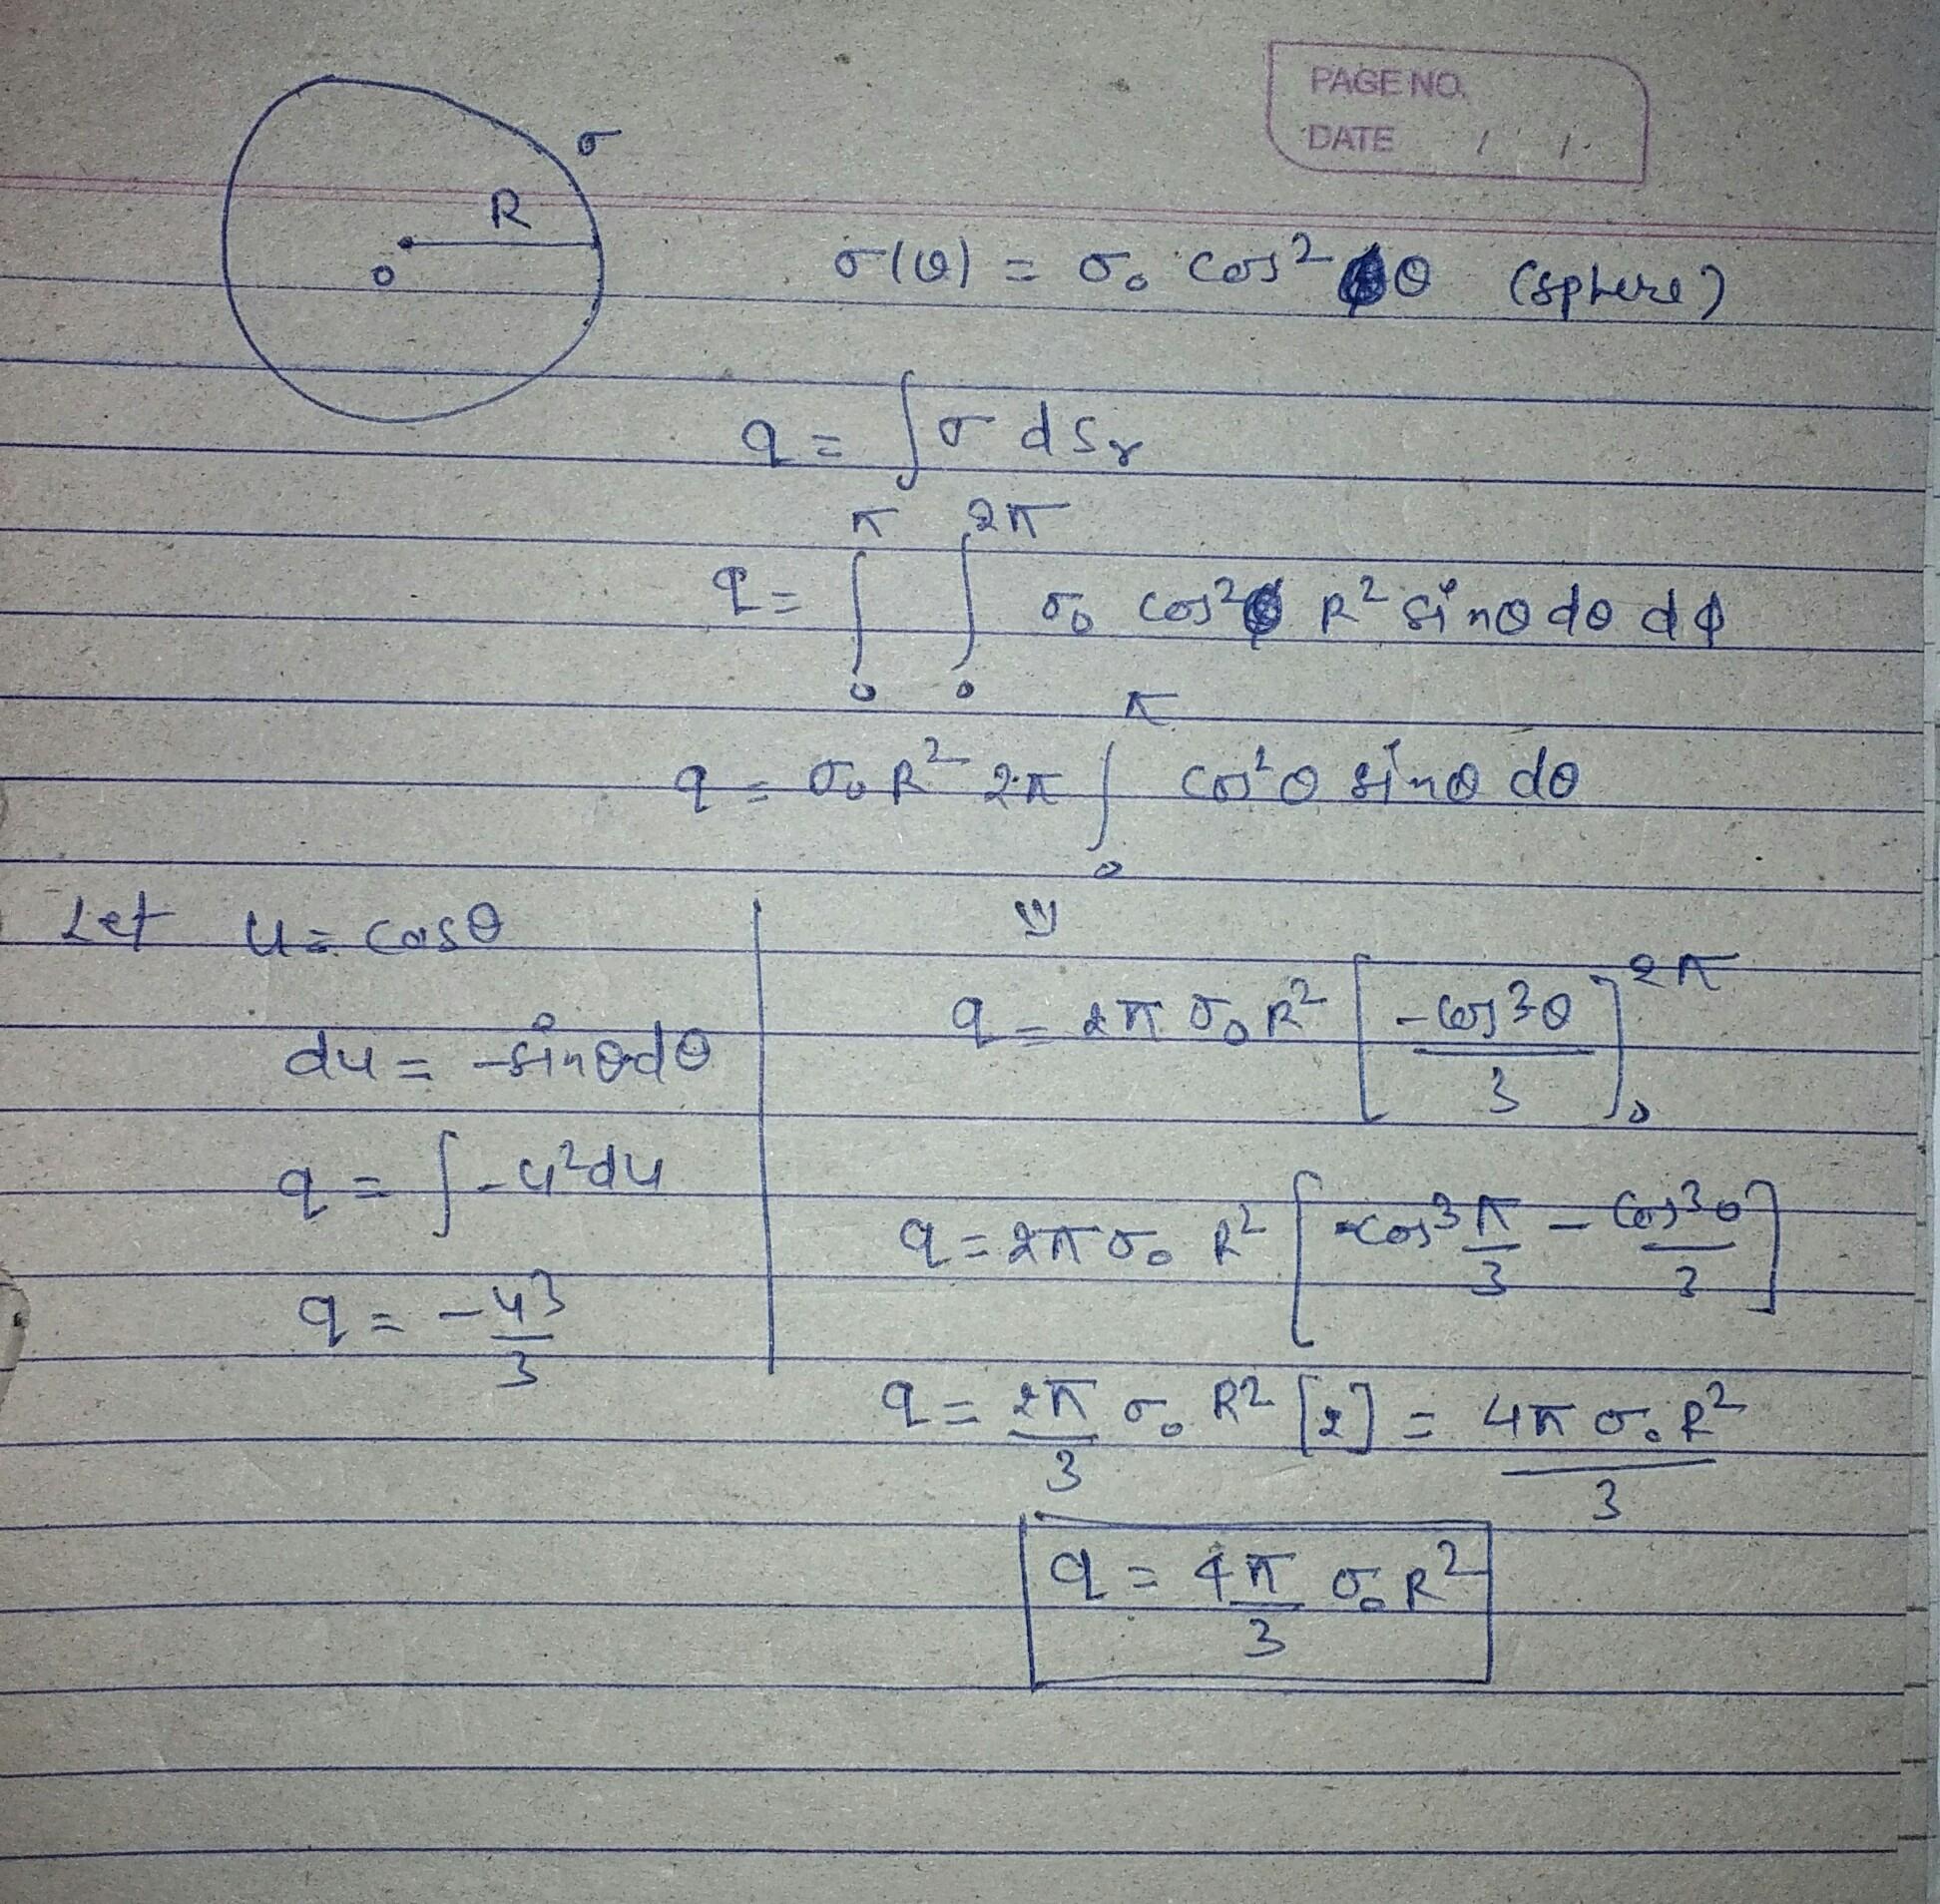 PAGE NO.
DATE / /
σ
R
o
σ(θ) = σ₀ cos² θ (sphere)
q = ∫ σ dSᵣ
q = ∫₀^π ∫₀^2π σ₀ cos² R² sinθ dθ dϕ
q = σ₀ R² 2π ∫₀^π cos²θ sinθ dθ
Let u = cosθ
du = -sinθdθ
q = ∫ -u²du
q = -u³/3
q = 2π σ₀ R² [-cos³θ/3]₀^2π
q = 2π σ₀ R² [-cos³π/3 - cos³0/3]
q = 2π/3 σ₀ R² [2] = 4π σ₀ R²/3
q = 4π/3 σ₀ R²